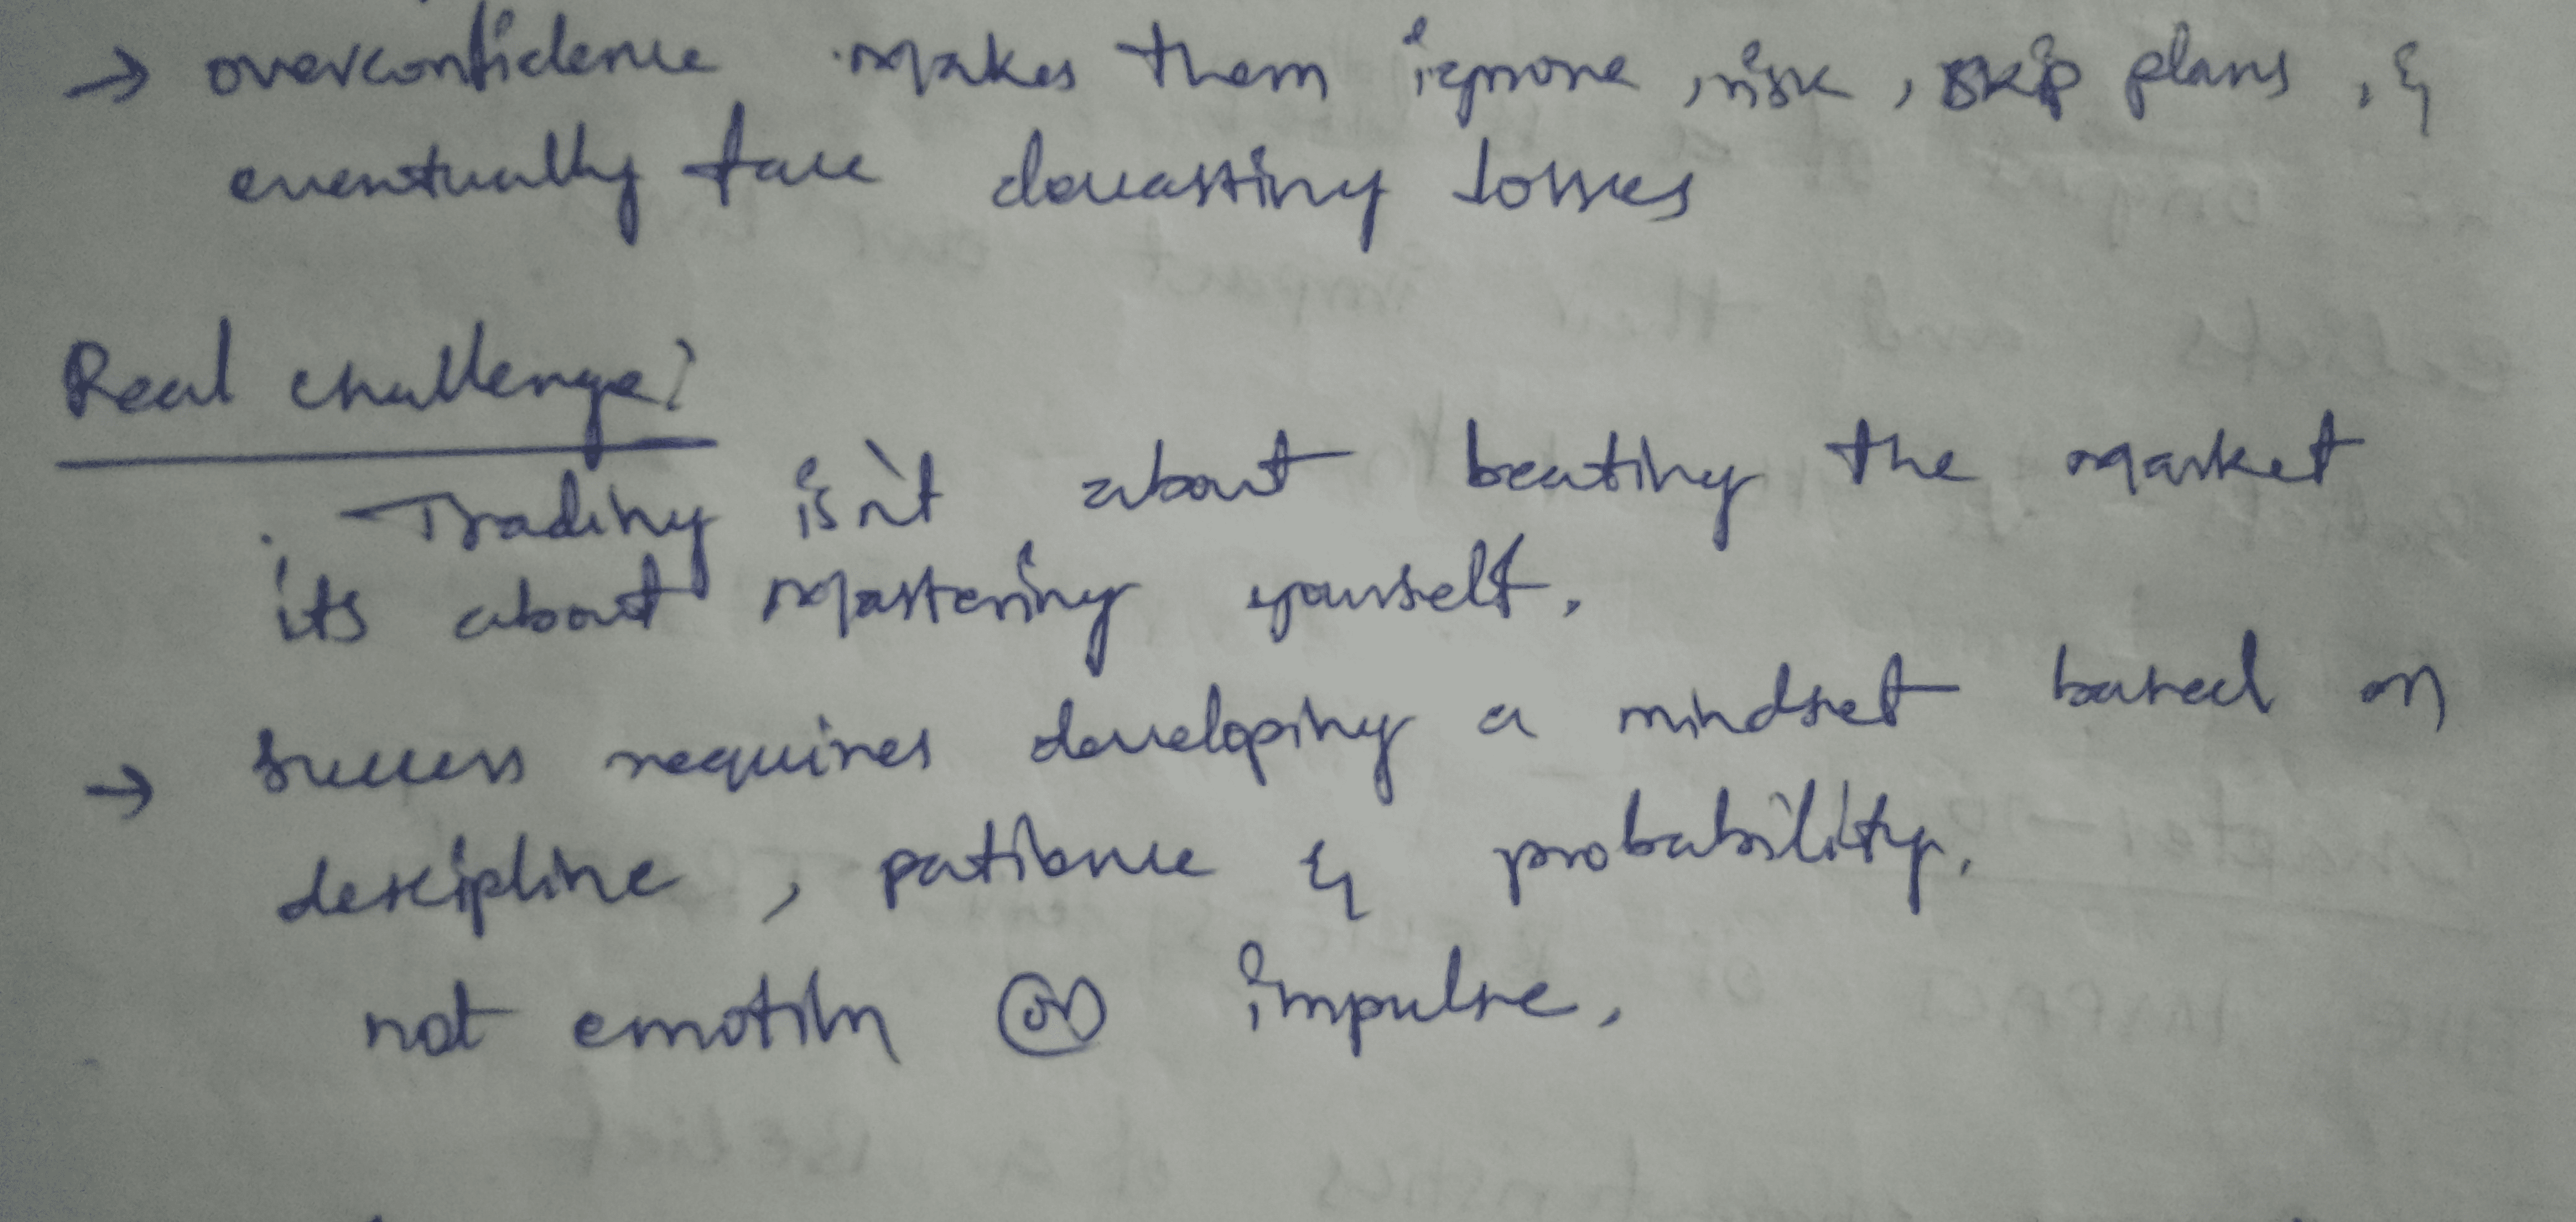 → overconfidence makes them ignore risk, skip plans, &
eventually face devasting losses
Real challenge?
. Trading isn't about beating the market
its about mastering yourself.
→ Success requires developing a mindset based on
descipline, patience & probability.
not emotion or impulse.